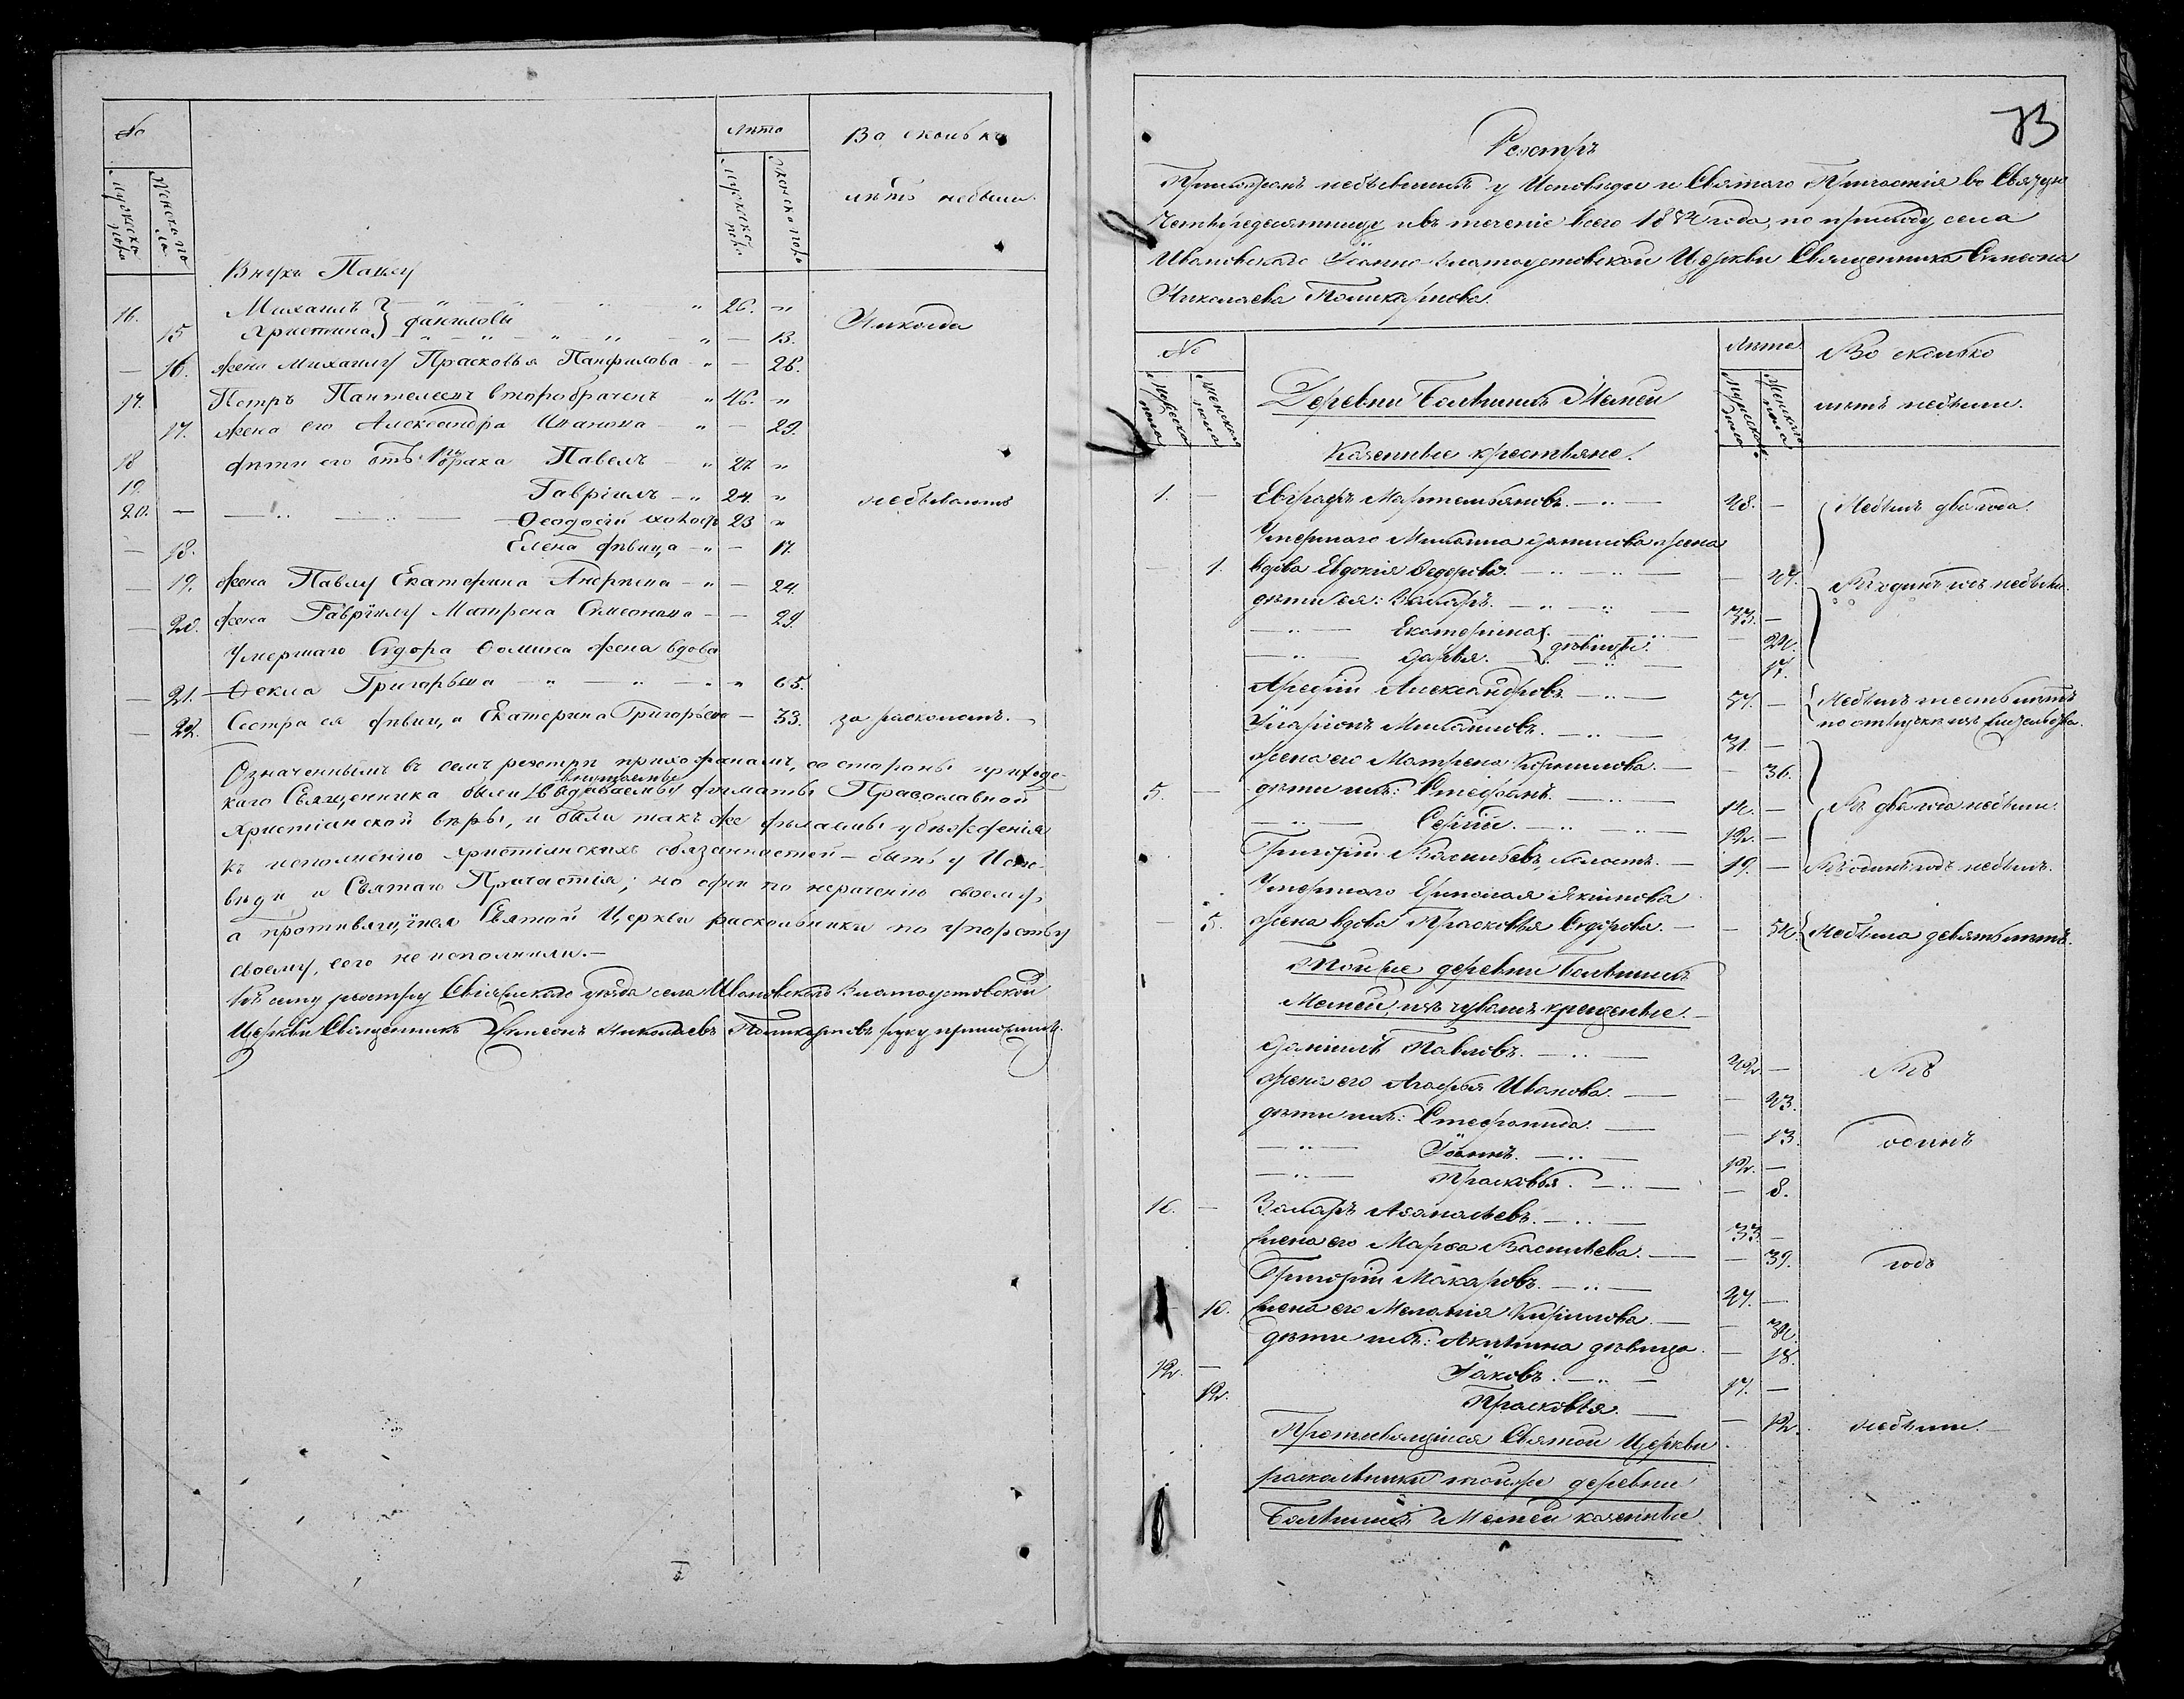 №
Лѣта
Во сколько
лѣтъ небыли.
мужска пола
Женска по ла
мужеска пола
женска пола
Внукъ Павлу
16. Михаилъ } — 26. „ Никогда
15 Христина } Даниловы — 13.
— 16. жена Михаилу Прасковья Панфилова „ — 28.
17. Петръ Пантелеевъ второбраченъ „ 46. „
17. жена его Александра Иванова „ — 29.
18 дѣти его отъ 1го брака Павелъ „ 27 „
19. Гаврiилъ „ 24. „ небываютъ
20. — Ѳеодосiй холос 23 „
— 18. Елена дѣвица „ — 17.
— 19. жена Павлу Екатерина Андреева „ — 24.
— 20. жена Гаврiилу Матрена Симеонова — 29.
Умершаго Сидора Ѳомина жена вдова
— 21. Ѳекла Григорьева „ 65.
— 22. Сестра ея дѣвица Екатерина Григорьева — 33. за расколомъ.
Означеннымъ въ семъ реэстрѣ прихожанамъ, со стороны приход-
скаго Священника были внушаемы догматы Православной
Христiанской вѣры, и были такъ же дѣлаемы убѣжденiя
къ исполненiю христiанскихъ обязанностей — быть у Испо-
вѣди и Святаго Причастiя; но одни по нераченiю своему,
а противящiися Святой Церкви раскольники по упорству
своему, сего не исполнили. —
Къ сему реэстру Свiяжскаго уѣзда села Ивановскаго Златоустовской
Церкви Священникъ Симеонъ Николаевъ Поликарповъ руку приложилъ.
73
Реэстръ
Прихожанъ небывшимъ у Исповѣди и Святаго Причастiя во Святую
Четыредесятницу и въ теченiе всего 1872 года, по приходу села
Ивановскаго Iоанно-Златоустовской Церкви Священника Симеона
Николаева Поликарпова.
№
Лѣта
Во сколько
лѣтъ небыли.
Мужеска пола
Женска пола
Мужеска пола
Женскаго пола
Деревни Большихъ Мемей
Казенные крестьяне.
1. — Евграфъ Мартемьяновъ. — 28. — Небылъ два года.
Умершаго Михаила Данилова жена
— 1. вдова Евдокiя Ѳедорова. — 47. Въ одинъ годъ небыли.
дѣти ея: Захаръ. — 33. —
Екатерина } — 22.
Дарья. } дѣвицы. — 17.
Арефiй Александровъ. — 57. — Небылъ шесть лѣтъ
по отлучкамъ
Иларiонъ Михайловъ. — 31. —
жена его Матрена Кирилова. — 36.
5. — дѣти ихъ: Стефанъ. — 14. — Въ два года небыли.
Сергiй. — 12. —
Григорiй Васильевъ, холостъ. — 19. — Въ одинъ годъ небылъ.
Умершаго Ермолая Якимова
— 5. жена вдова Прасковья Сидорова. — 52. Небыла девять лѣтъ.
Той же деревни Большихъ
Мемей, изъ чувашъ крещеные. —
Данiилъ Павловъ. — 42. — Въ
жена его Агафья Иванова. — 43.
дѣти ихъ: Стефанида. — 13. одинъ
Iоаннъ. — 12. —
Прасковья. — 8.
10. — Захаръ Аѳанасьевъ. — 33. —
жена его Марѳа Васильева. — 39. годъ
Григорiй Макаровъ. — 47. —
— 10. жена его Меланiя Кирилова. —
дѣти ихъ: Акилина дѣвица. — 18.
12. — Iаковъ. — 17. —
12. Прасковья. — 12. небыли. —
Противящiися Святой Церкви
раскольники той же деревни
Большихъ Мемей казенные